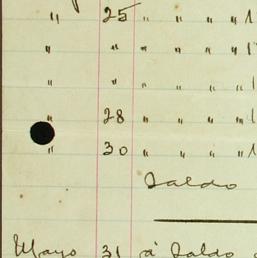 " 25 " " " " 1
" " " " " " 1
" " " " " " 1
" 28 " " " " 1
" 30 " " " " 1
Saldo
Mayo 31 á Saldo